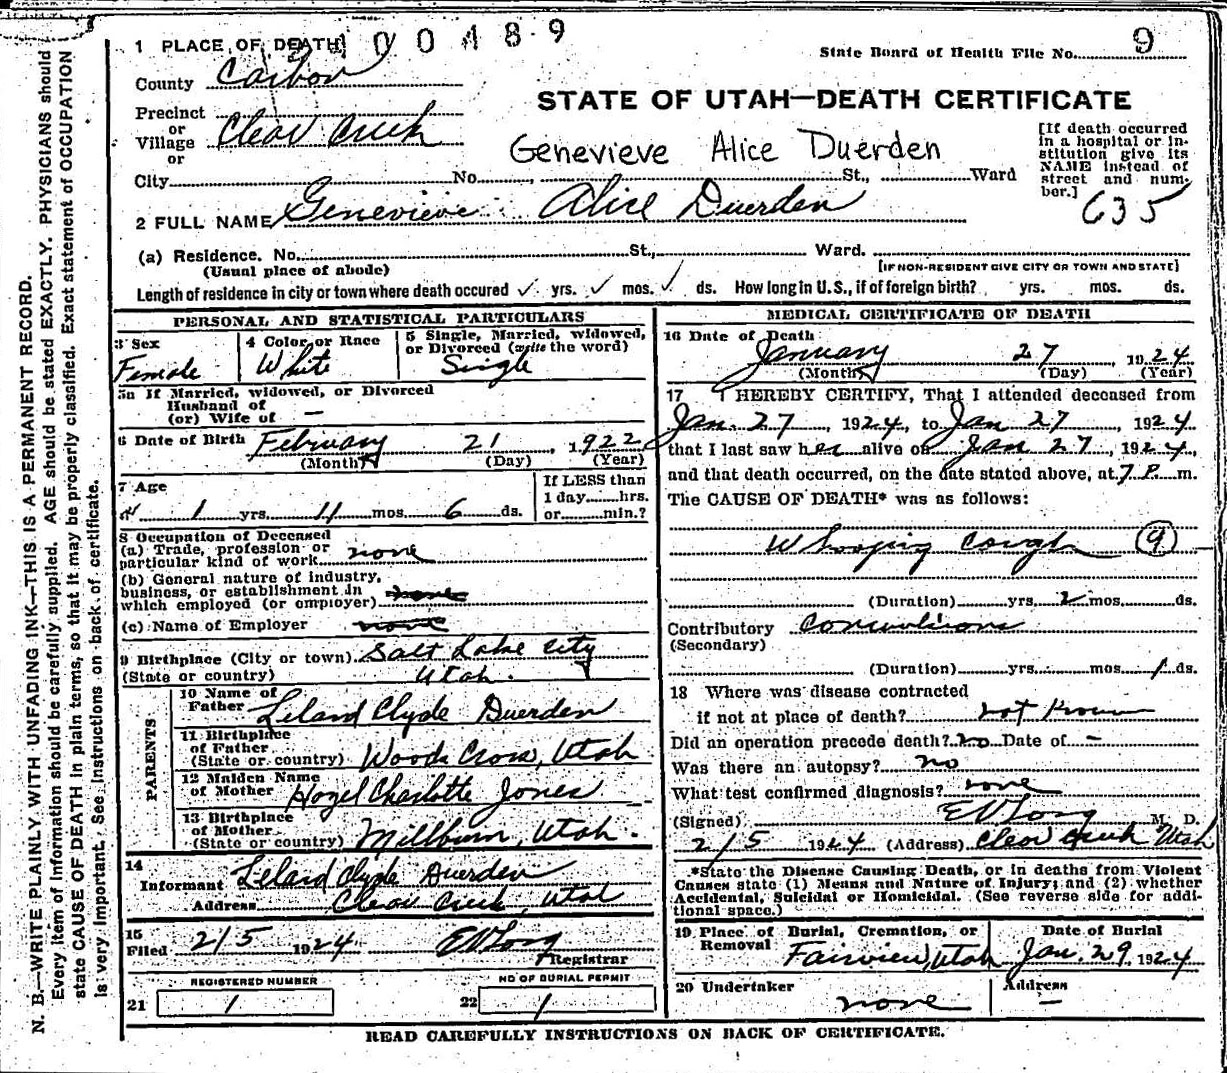 1 PLACE OF DEATH 100489
State Board of Health File No. 9
County Carbon
STATE OF UTAH—DEATH CERTIFICATE
Precinct
or
Village Clear Creek
or
Genevieve Alice Duerden
[If death occurred in a hospital or in-
stitution give its
NAME instead of
street and num-
ber.]
635
City No. St., Ward
2 FULL NAME Genevieve Alice Duerden
(a) Residence. No. St., Ward.
(Usual place of abode) [IF NON-RESIDENT GIVE CITY OR TOWN AND STATE]
Length of residence in city or town where death occured ✓ yrs. ✓ mos. ✓ ds. How long in U.S., if of foreign birth? yrs. mos. ds.
PERSONAL AND STATISTICAL PARTICULARS
3 Sex
Female
4 Color or Race
White
5 Single, Married, widowed,
or Divorced (write the word)
Single
5a If Married, widowed, or Divorced
Husband of
(or) Wife of —
6 Date of Birth February 21, 1922
(Month) (Day) (Year)
7 Age
1 yrs. 11 mos. 6 ds.
If LESS than
1 day hrs.
or min.?
8 Occupation of Deceased
(a) Trade, profession or
particular kind of work none
(b) General nature of industry,
business, or establishment in
which employed (or employer) none
(c) Name of Employer none
9 Birthplace (City or town) Salt Lake City
(State or country) Utah.
PARENTS
10 Name of
Father Leland Clyde Duerden
11 Birthplace
of Father
(State or country) Woods Cross, Utah
12 Maiden Name
of Mother Hazel Charlotte Jones
13 Birthplace
of Mother
(State or country) Millburn, Utah.
14
Informant Leland Clyde Duerden
Address Clear Creek, Utah
15
Filed 2/5 1924 EV Long
Registrar
REGISTERED NUMBER
21 1
NO OF BURIAL PERMIT
22 1
MEDICAL CERTIFICATE OF DEATH
16 Date of Death
January 27 1924
(Month) (Day) (Year)
17 I HEREBY CERTIFY, That I attended deceased from
Jan. 27, 1924, to Jan 27, 1924
that I last saw her alive on Jan 27, 1924,
and that death occurred, on the date stated above, at 7 P. m.
The CAUSE OF DEATH* was as follows:
Whooping cough 9
(Duration) yrs. 2 mos. ds.
Contributory Convulsions
(Secondary)
(Duration) yrs. mos. 1 ds.
18 Where was disease contracted
if not at place of death? not known
Did an operation precede death? no Date of —
Was there an autopsy? no
What test confirmed diagnosis? none
(Signed) EV Long M. D.
2/5 1924 (Address) Clear Creek Utah
*State the Disease Causing Death, or in deaths from Violent
Causes state (1) Means and Nature of Injury; and (2) whether
Accidental, Suicidal or Homicidal. (See reverse side for addi-
tional space.)
19 Place of Burial, Cremation, or
Removal
Fairview, Utah
Date of Burial
Jan. 29, 1924
20 Undertaker
none
Address
—
READ CAREFULLY INSTRUCTIONS ON BACK OF CERTIFICATE.
N. B.—WRITE PLAINLY WITH UNFADING INK—THIS IS A PERMANENT RECORD.
Every item of information should be carefully supplied. AGE should be stated EXACTLY. PHYSICIANS should
state CAUSE OF DEATH in plain terms, so that it may be properly classified. Exact statement of OCCUPATION
is very important. See instructions on back of certificate.